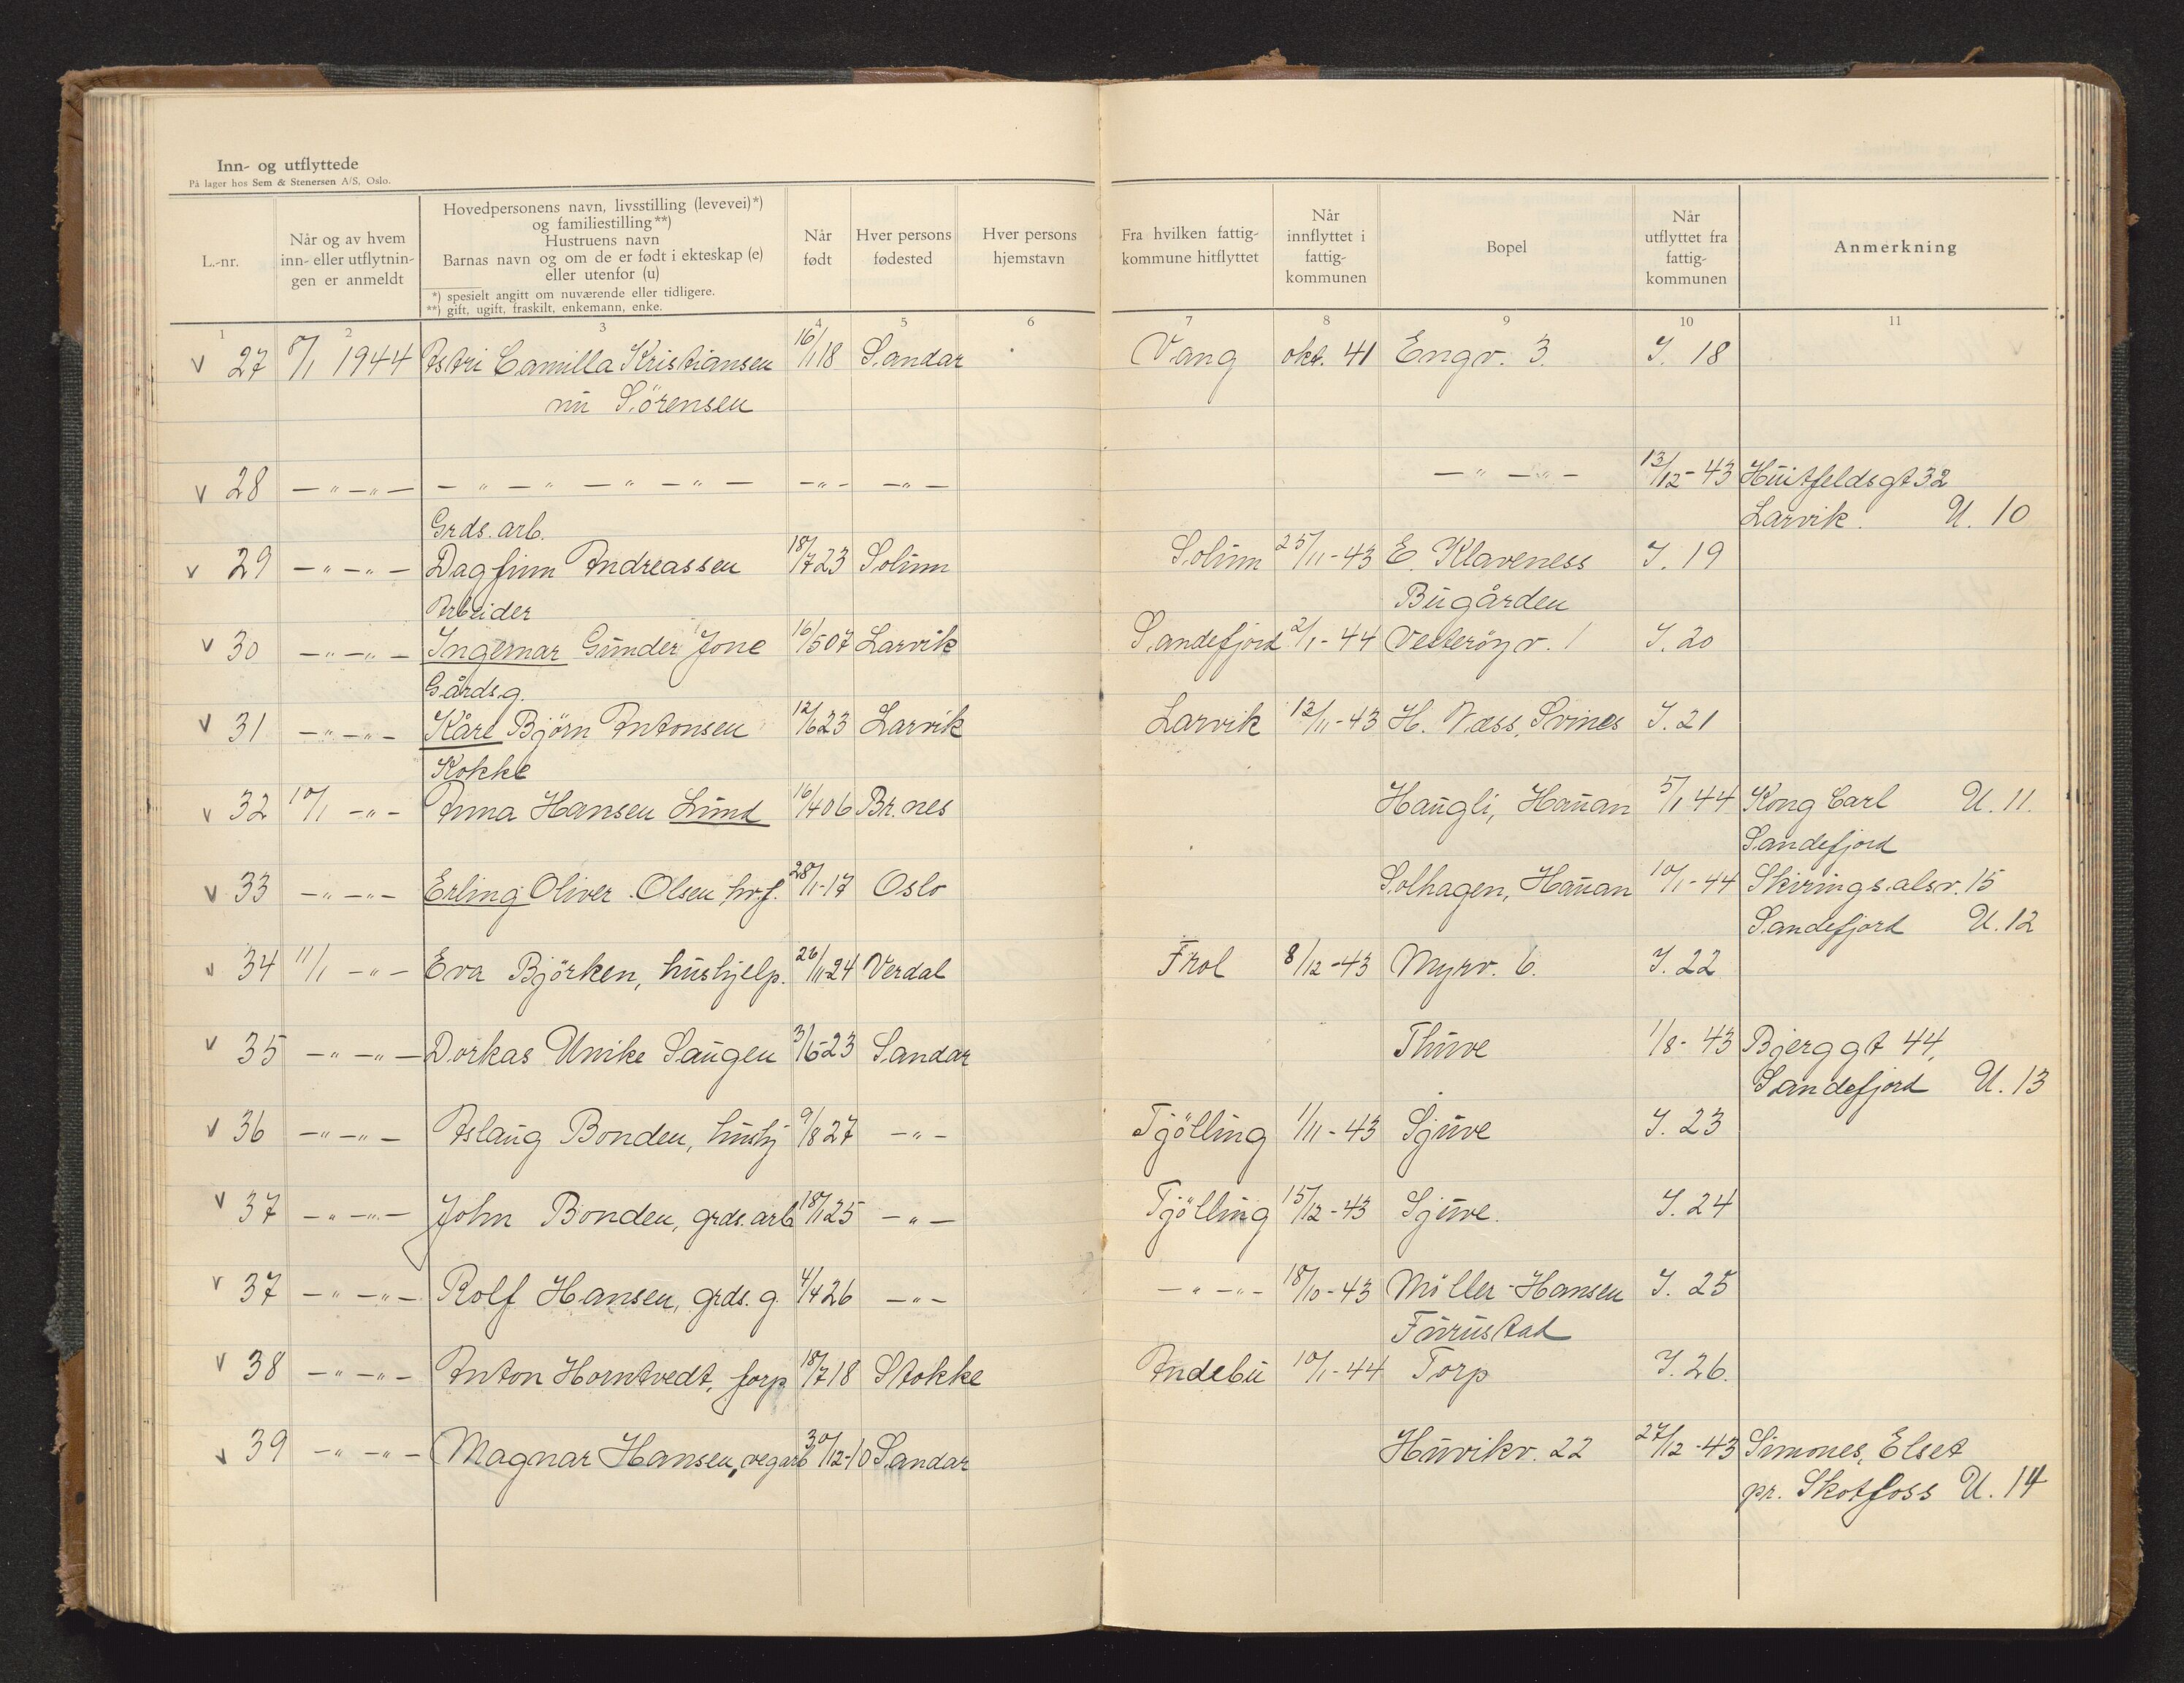 Inn- og utflyttede
På lager hos Sem & Stenersen A/S, Oslo.
L.-nr.
Når og av hvem
inn- eller utflytnin-
gen er anmeldt
Hovedpersonens navn, livsstilling (levevei)*)
og familiestilling**)
Hustruens navn
Barnas navn og om de er født i ekteskap (e)
eller utenfor (u)
*) spesielt angitt om nuværende eller tidligere.
**) gift, ugift, fraskilt, enkemann, enke.
Når
født
Hver persons
fødested
Hver persons
hjemstavn
Fra hvilken fattig-
kommune hitflyttet
Når
innflyttet i
fattig-
kommunen
Bopel
Når
utflyttet fra
fattig-
kommunen
Anmerkning
1 2 3 4 5 6 7 8 9 10 11
v 27 8/1 1944 Astri Camilla Kristiansen 16/1 18 Sandar Vang okt. 41 Engv. 3. I. 18
nū Sörensen
v 28 —„—„— —„—„—„—„— —„— —„— —„—„— 13/12-43 Hūitfeldsgt 32
Larvik. U. 10
Grds. arb.
v 29 —„—„— Dagfinn Andreassen 18/7 23 Solūm Solūm 25/11-43 E. Klaveness I. 19
Būgården
Arbeider
v 30 —„—„— Ingemar Gūnder Jone 16/5 07 Larvik Sandefjord 2/1-44 Vesteröyv. 1 I. 20
Gårdsg.
v 31 —„—„— Kåre Björn Antonsen 12/6 23 Larvik Larvik 12/11-43 H. Næss, Svines I. 21
Kokke
v 32 10/1 —„— Anna Hansen Lūnd 16/4 06 Br.nes Haūgli, Haūan 5/1 44 Kong Carl U. 11.
Sandefjord
v 33 —„—„— Erling Oliver Olsen hvf. 28/1-17 Oslo Solhagen, Haūan 10/1-44 Skiringsalsv. 15
Sandefjord U. 12
v 34 11/1 —„— Eva Björken, hūshjelp. 26/11-24 Verdal Frol 8/12-43 Myrv. 6. I. 22
v 35 —„—„— Dorkas Unike Saūgen 3/6-23 Sandar Thūve 1/8-43 Bjerggt 44,
Sandefjord U. 13
v 36 —„—„— Aslaūg Bonden, hūshj 9/8 27 —„— Tjölling 1/11-43 Sjūve I. 23
v 37 —„—„— John Bonden, grds. arb 18/1 25 —„— Tjölling 15/12-43 Sjūve. I. 24
v 37 —„—„— Rolf Hansen, grds. g. 4/4 26 —„— —„—„— 18/10-43 Möller-Hansen I. 25
Fūrūstad
v 38 —„—„— Anton Horntvedt, forp 18/7 18 Stokke Andebū 10/1-44 Torp I. 26.
v 39 —„—„— Magnar Hansen, vegarb 30/12-10 Sandar Hūvikv. 22 27/12-43 Simones, Elset
pr. Skotfoss U. 14